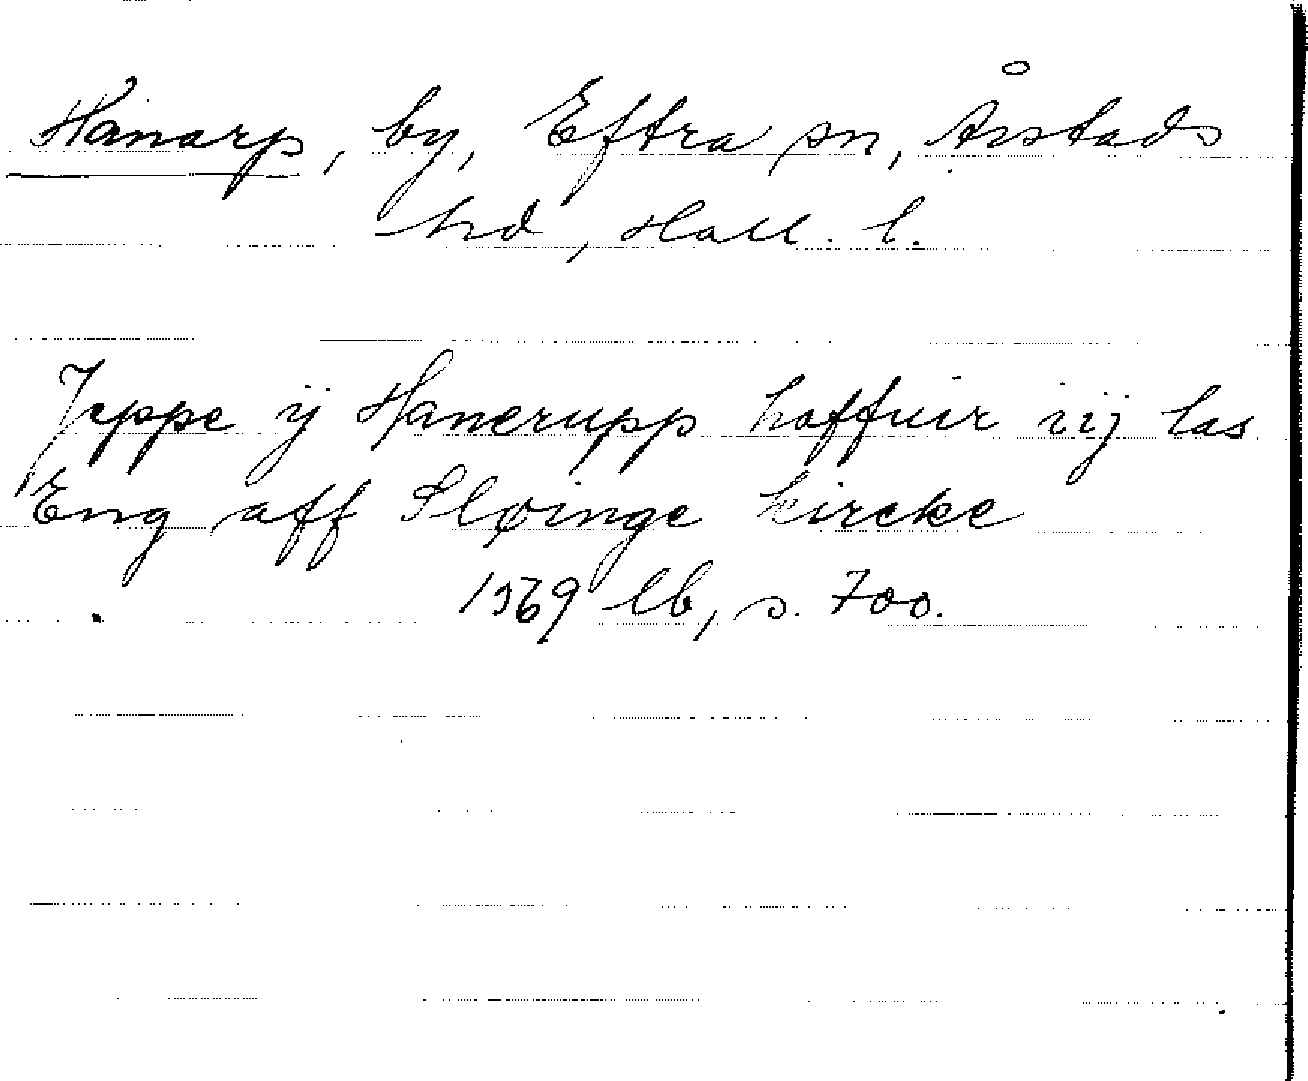 Hanarp, by, Eftra sn, Årstads
hd, Hall. l.
Jeppe ij Hanerupp haffuir iij las
Eng aff Sløinge kircke
1569 lb, s. 700.